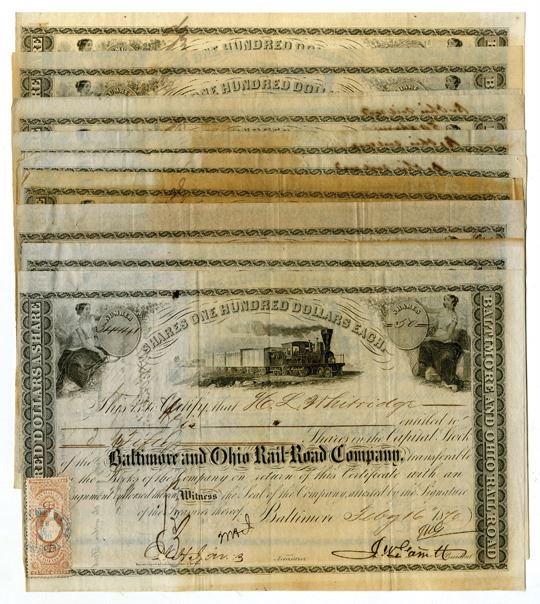 ONE HUNDRED DOLLARS
ONE HUNDRED DOLLARS
NUMBER
SHARES ONE HUNDRED DOLLARS EACH.
SHARES
50
This is to Certify, that H. L. Whitridge
entitled to
Fifty Shares in the Capital Stock
of the Baltimore and Ohio Rail-Road Company, transferable
on the Books of the Company on return of this Certificate with an
assignment endorsed thereon, Witness the Seal of the Company, attested by the Signature
of the Treasurer thereof. Baltimore Feby 16 1870
Treasurer
J. W. Garrett President
RED DOLLARS A SHARE
BALTIMORE AND OHIO RAIL-ROAD